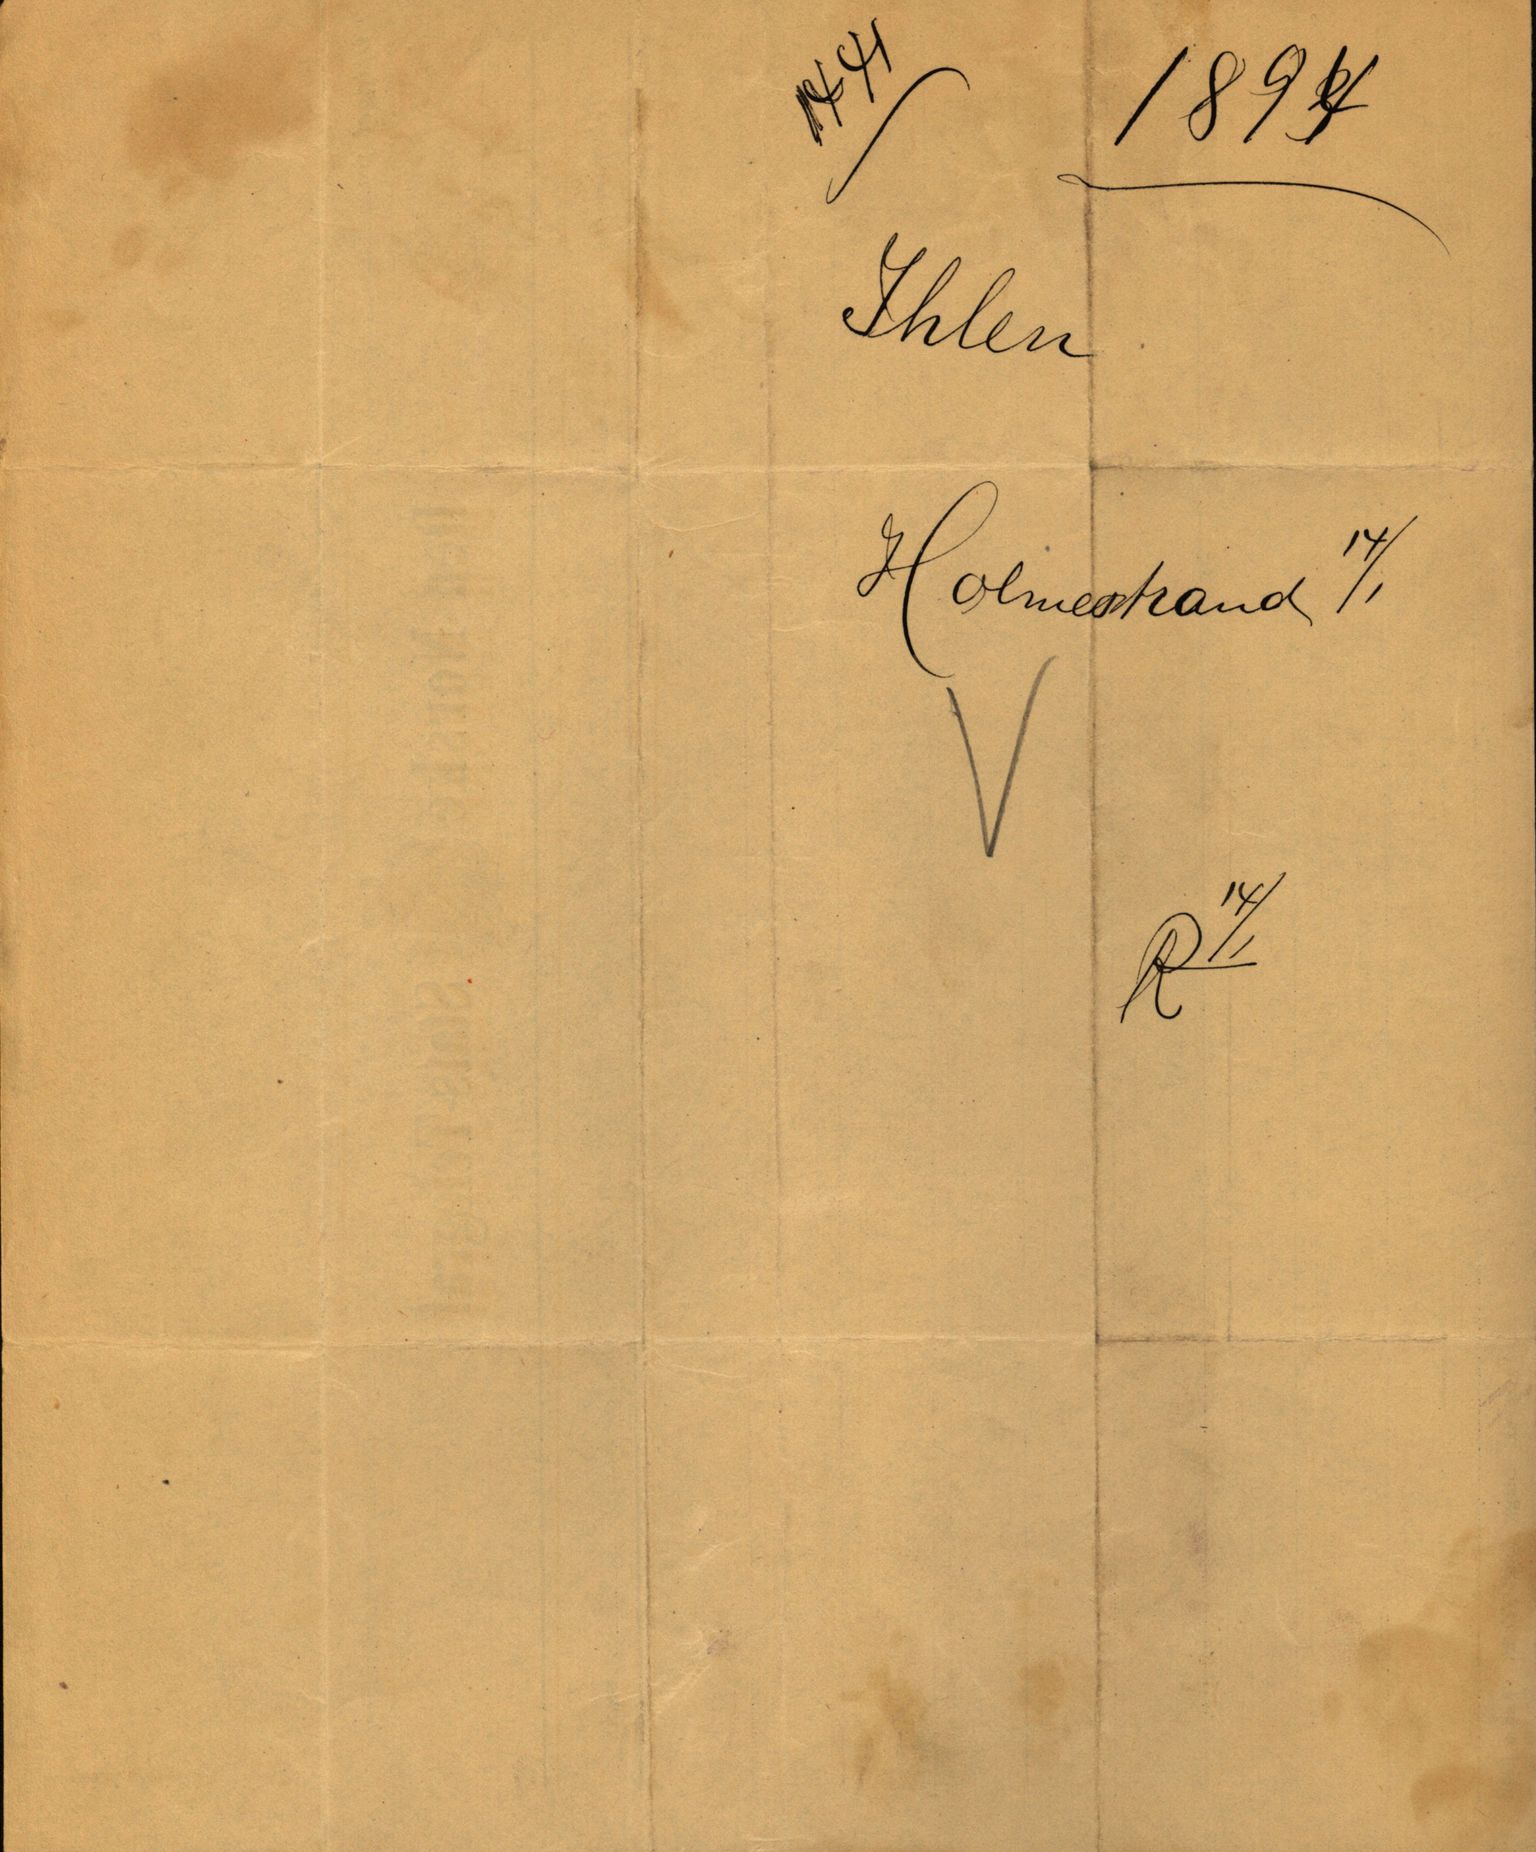 1894
Ihlen
Holmestrand 14/1
V
R 14/1